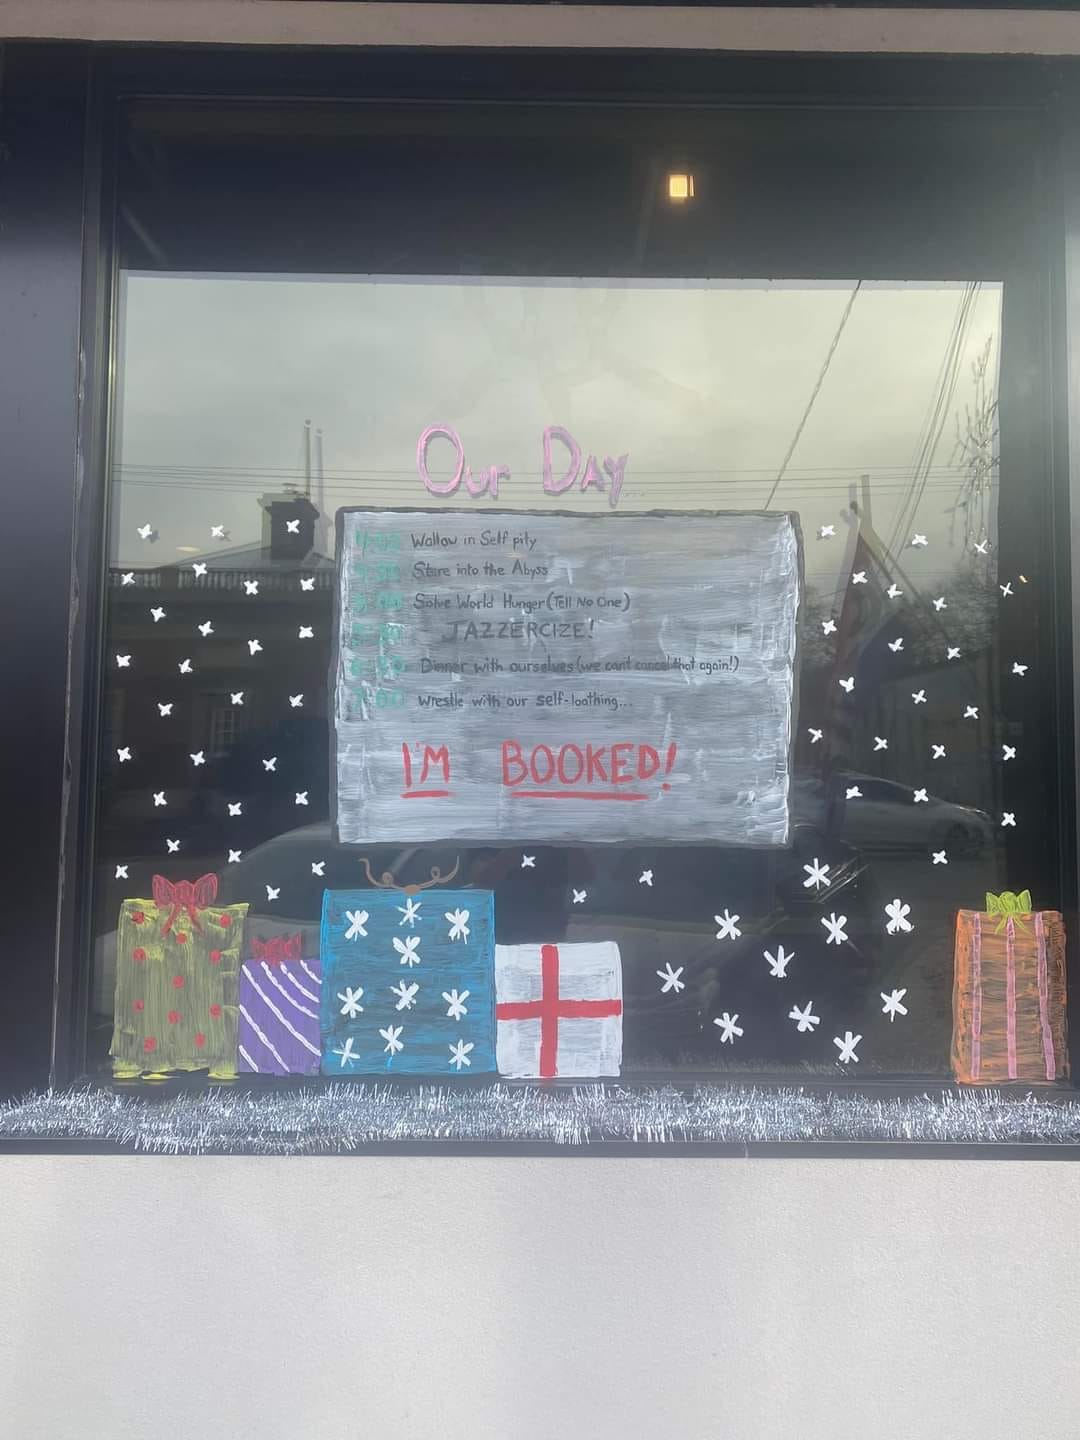 Our Day...
4:00 Wallow in Self pity
4:30 Stare into the Abyss
5:00 Solve World Hunger (Tell No One)
5:30 JAZZERCIZE!
6:30 Dinner with ourselves (we cant cancel that again!)
7:00 Wrestle with our self-loathing...
I'M BOOKED!